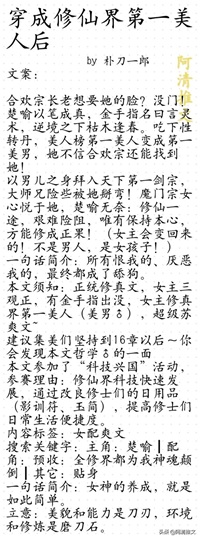 穿成修仙界第一美
人后
by 朴刀一郎
阿清推文
文案：
合欢宗长老想要她的脸？没门！
楚喻以笔成真，金手指名曰言灵
术，逆境之下枯木逢春。吃下性
转丹，美人榜第一美人变成第一
美男，她不信合欢宗还能找到
她！
以男儿之身拜入天下第一剑宗，
大师兄险些被她掰弯！魔门宗女
心悦于她，楚喻无奈：修仙一
途，艰难险阻，唯有保持本心，
方能修成正果！（女主会变回来
的！不是男人，是女孩子！）
一句话简介：所有恨我的、厌恶
我的，最终都成了舔狗。
本文须知：正统修真文，女主三
观正，有金手指出没，女主修真
界第一美人（美男♂），超级苏
爽文~
建议集美们坚持到16章以后～你
会发现本文哲学♂的一面
本文参加了“科技兴国”活动，
参赛理由：修仙界科技快速发
展，通过改良修士们的日用品
（影训符、玉简），提高修士们
日常生活便捷度。
内容标签：女配爽文
搜索关键字：主角：楚喻┃配
角：预收：全修都为我神魂颠
倒┃其它：贴身
一句话简介：女神的养成，就是
如此简单。
立意：美貌和能力是刀刃，环境
和修炼是磨刀石。